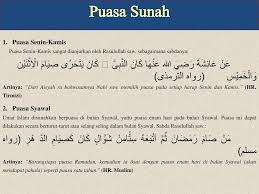 Puasa Sunah
1. Puasa Senin-Kamis
Puasa Senin-Kamis sangat dianjurkan oleh Rasulullah saw. sebagaimana sabdanya:
عَنْ عَائِشَةَ رَضِيَ اللهُ عَنْهَا كَانَ النَّبِيُّ كَانَ يَتَحَرَّى صِيَامَ الْاِثْنَيْنِ
وَالْخَمِيْسِ (رواه الترمذى)
Artinya: "Dari Aisyah ra bahwasannya Nabi saw memilih waktu puasa pada setiap harap Senin dan Kamis." (HR.
Tirmizi)
2. Puasa Syawal
Umat Islam disunahkan berpuasa di bulan Syawal, yaitu puasa enam hari pada bulan Syawal. Puasa ini dapat
dilakukan secara berturut-turut atau selang seling dalam bulan Syawal. Sabda Rasulullah saw.:
مَنْ صَامَ رَمَضَانَ ثُمَّ أَتْبَعَهُ سِتًّا مِنْ شَوَّالٍ كَانَ كَصِيَامِ الدَّهْرِ (رواه
مسلم)
Artinya: "Barangsiapa puasa Ramadan, kemudian ia ikuti dengan puasa enam hari di bulan Syawal (akan
mendapat pahala) seperti puasa satu tahun." (HR. Muslim)